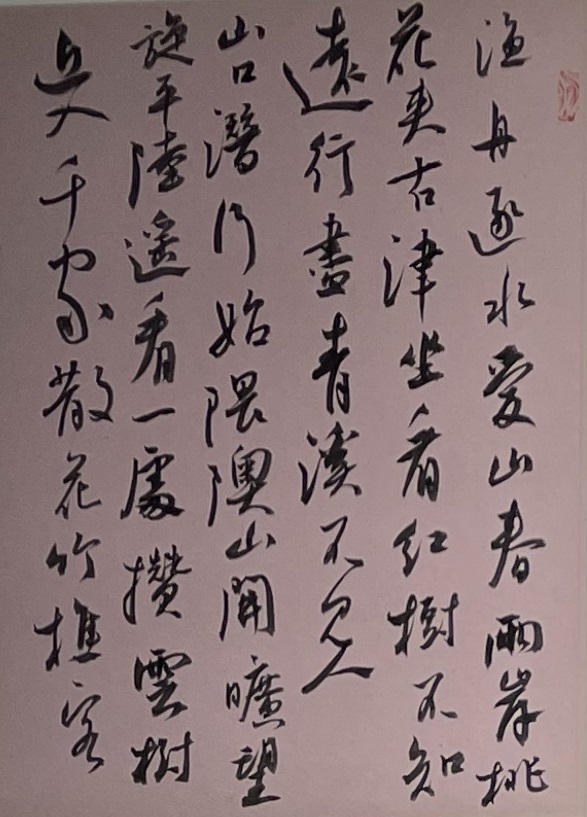 漁舟逐水愛山春兩岸桃
花夾古津坐看紅樹不知
遠行盡青溪不見人
山口潛行始隈隩山開曠望
旋平陸遥看一處攢雲樹
近入千家散花竹樵客